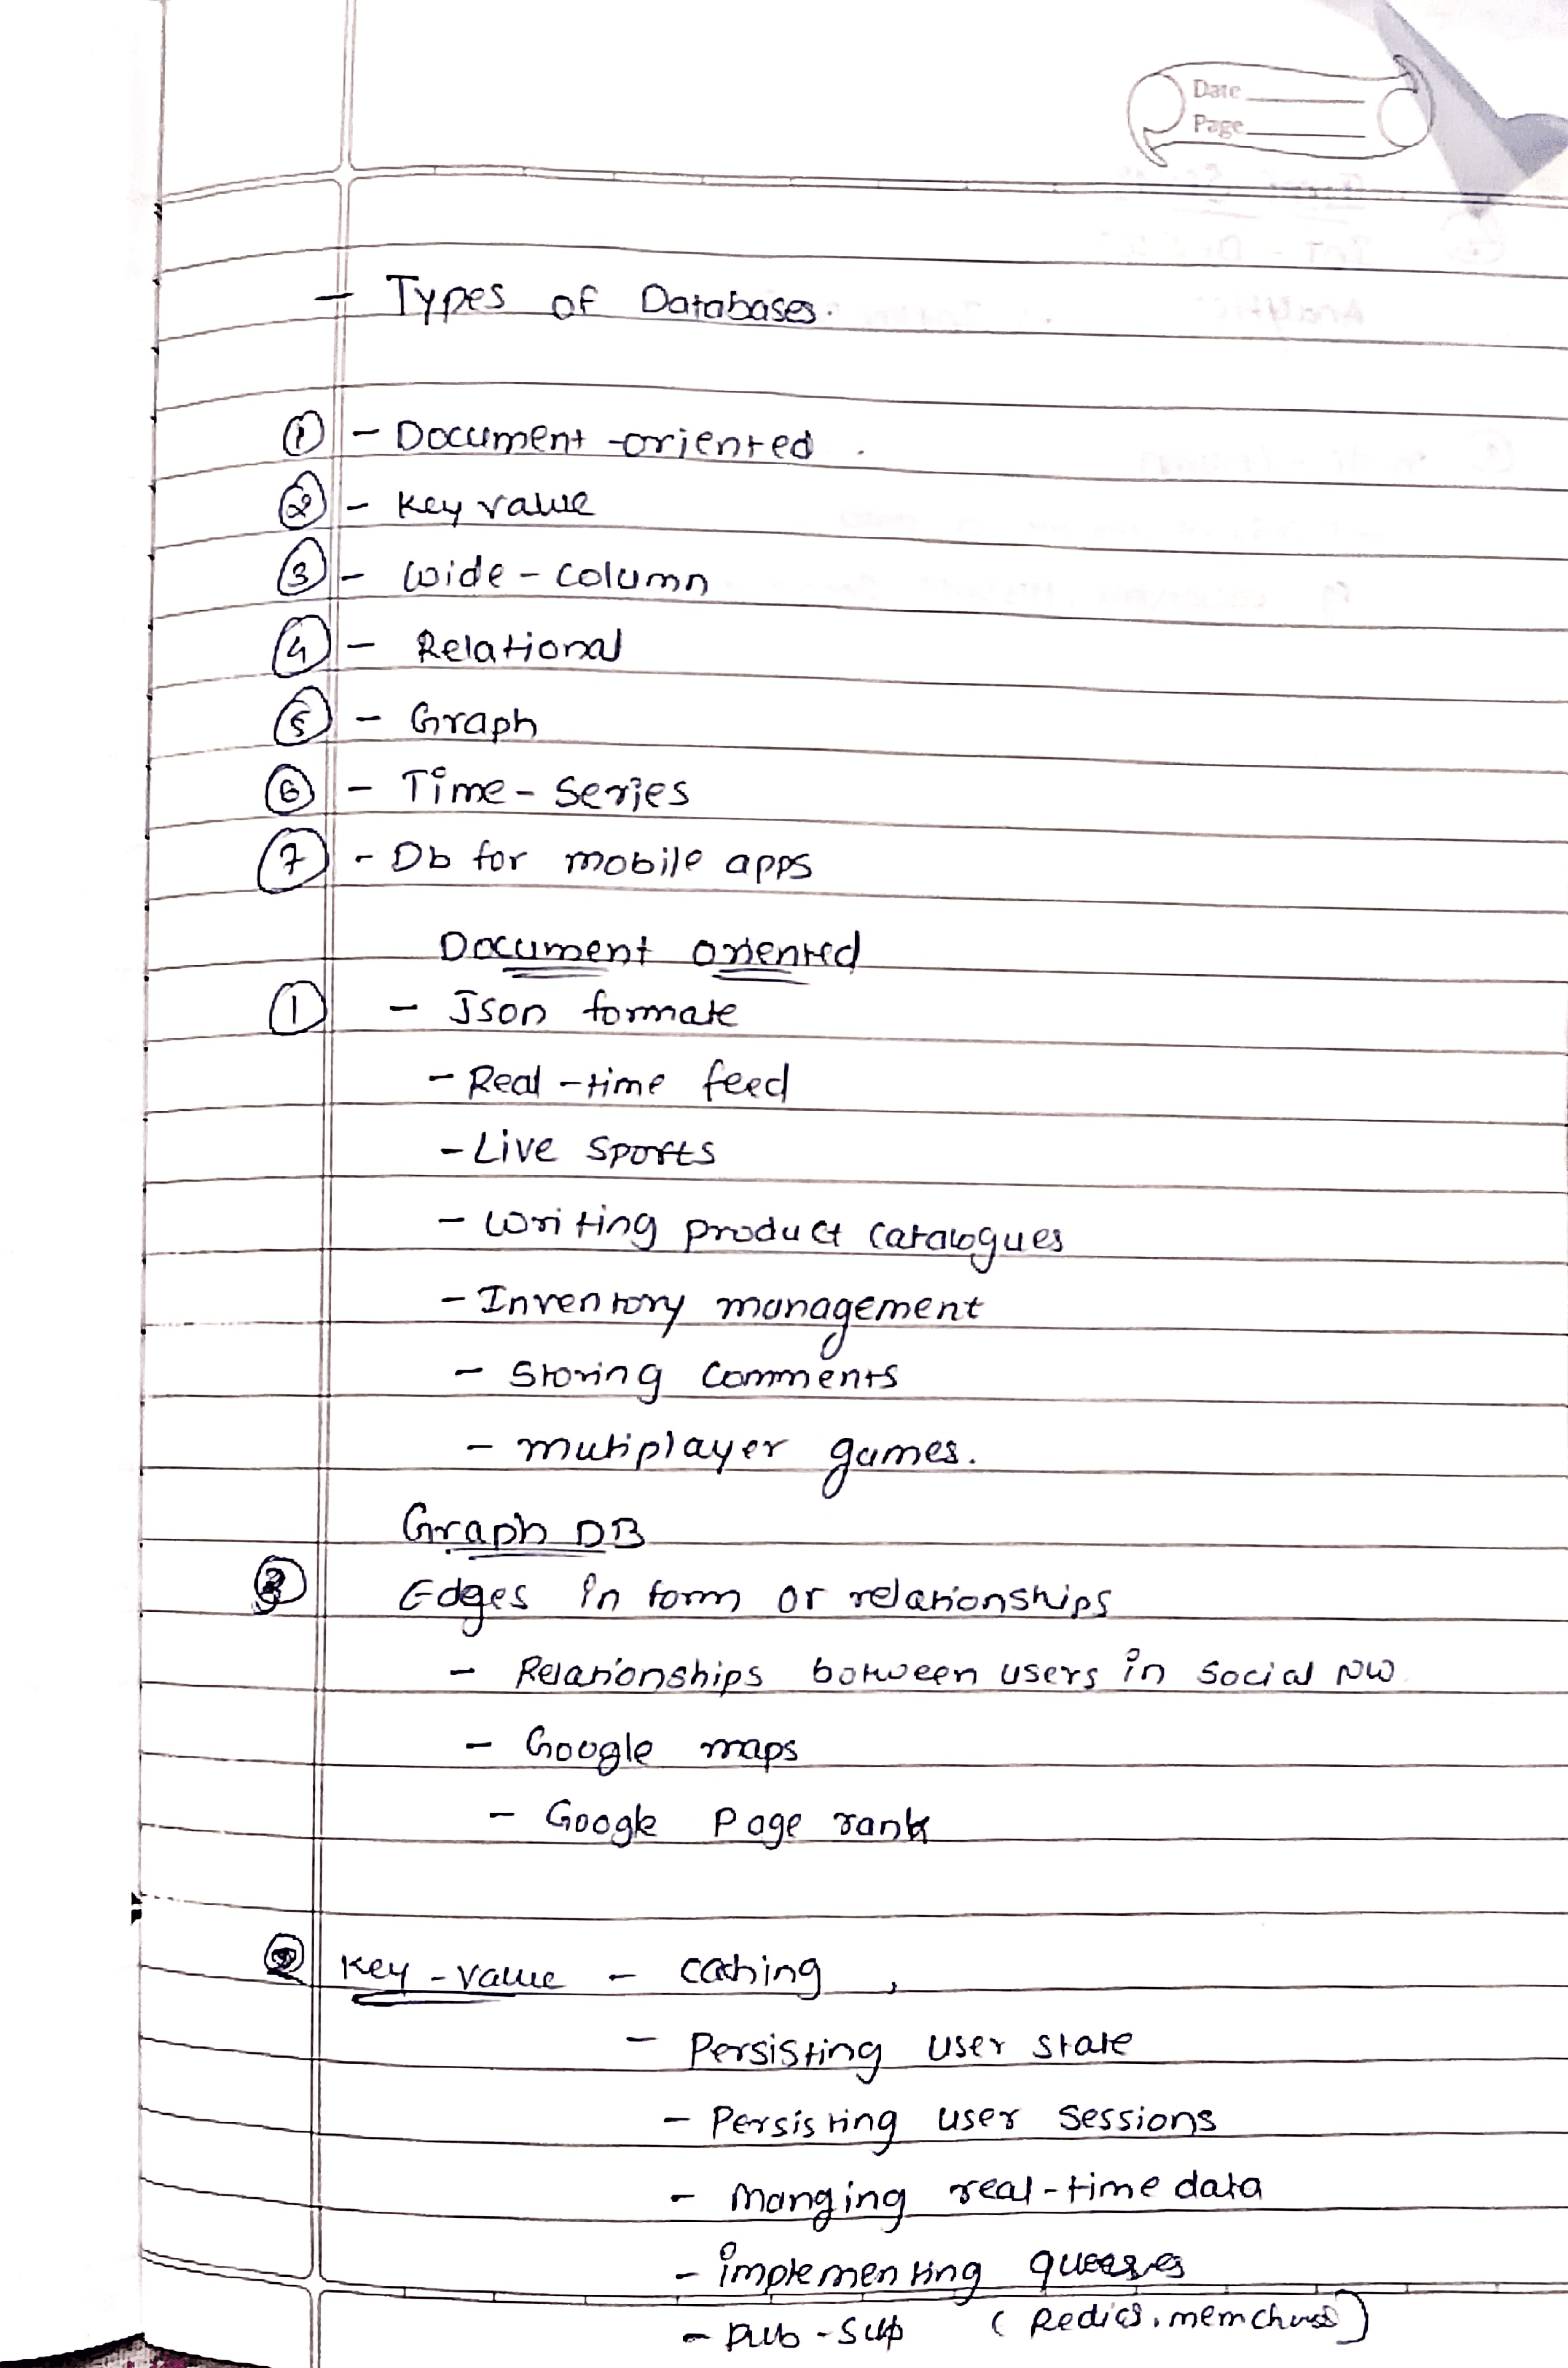 Date
Page
- Types of Databases.
① - Document-oriented.
② - Key value
③ - Wide-column
④ - Relational
⑤ - Graph
⑥ - Time-Series
⑦ - Db for mobile apps
Document oriented
① - Json formate
- Real-time feed
- Live Sports
- Writing product Catalogues
- Inventory management
- Storing Comments
- mutiplayer games.
Graph DB
③ Edges in form or relationships
- Relationships between users in Social NW
- Google maps
- Google Page rank
② Key-value - caching,
- Persisting user state
- Persisting user sessions
- Manging real-time data
- implementing
- Pub-Sup (Redics,